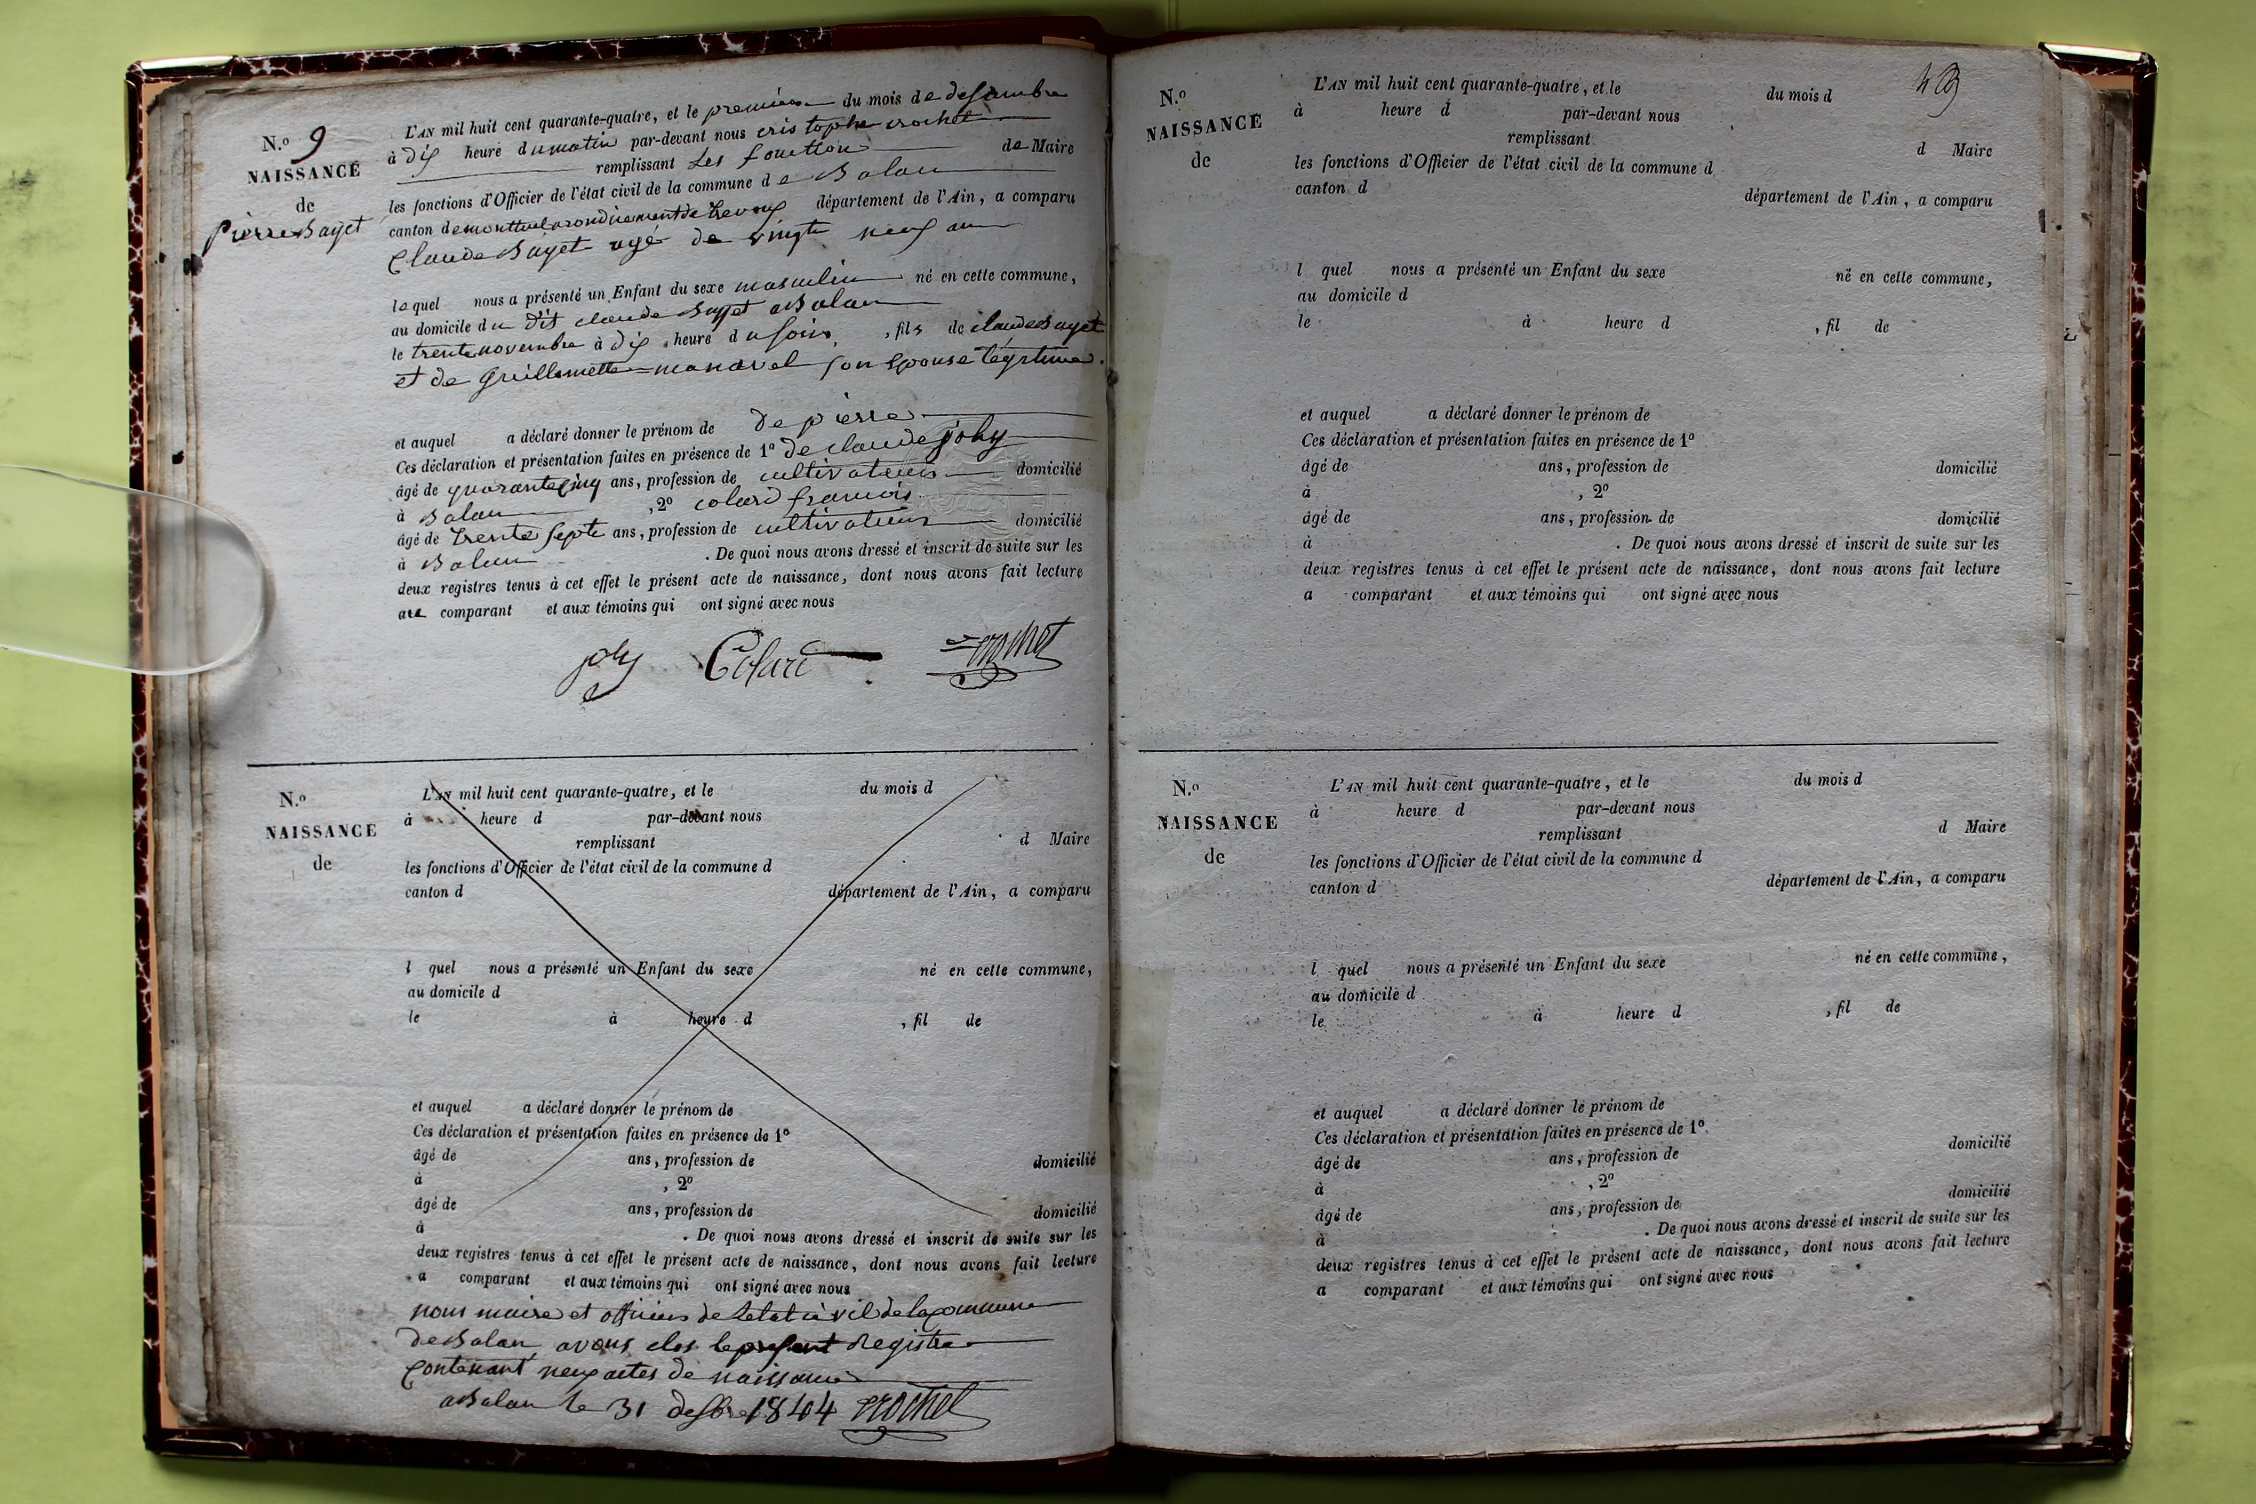 N.º 9
NAISSANCE
de
pierre Bayet
L'AN mil huit cent quarante-quatre, et le premier du mois de desambre
à dix heure du matin par-devant nous cristophe crochet
remplissant les fonction de Maire
les fonctions d'Officier de l'état civil de la commune de Balan
canton de montluel arondicement de trevoux département de l'Ain, a comparu
Claude Bayet agé de vingt neuf an
le quel nous a présenté un Enfant du sexe masculin né en cette commune,
au domicile du dit claude Bayet a Balan
le trente novembre à dix heure du soir, fils de claude Bayet
et de guillemette manavel son epouse légitime.
et auquel a déclaré donner le prénom de de pierre
Ces déclaration et présentation faites en présence de 1º de claude joly
âgé de quarante cinq ans, profession de cultivateur domicilié
à Balan, 2º colard francois
âgé de trente septe ans, profession de cultivateur domicilié
à Balan. De quoi nous avons dressé et inscrit de suite sur les
deux registres tenus à cet effet le présent acte de naissance, dont nous avons fait lecture
au comparant et aux témoins qui ont signé avec nous
joly Colard crochet
N.º
NAISSANCE
de
L'AN mil huit cent quarante-quatre, et le du mois d
à heure d par-devant nous
remplissant d Maire
les fonctions d'Officier de l'état civil de la commune d
canton d département de l'Ain, a comparu
l quel nous a présenté un Enfant du sexe né en cette commune,
au domicile d
le à heure d , fil de
et auquel a déclaré donner le prénom de
Ces déclaration et présentation faites en présence de 1º
âgé de ans, profession de domicilié
à , 2º
âgé de ans, profession de domicilié
à . De quoi nous avons dressé et inscrit de suite sur les
deux registres tenus à cet effet le présent acte de naissance, dont nous avons fait lecture
a comparant et aux témoins qui ont signé avec nous
nous maire et officier de letat civil de la commune
de Balan avons clos le present Registre
contenant neuf actes de naissance
a Balan le 31 desbre 1844 crochet
N.º
NAISSANCE
de
L'AN mil huit cent quarante-quatre, et le du mois d
à heure d par-devant nous
remplissant d Maire
les fonctions d'Officier de l'état civil de la commune d
canton d département de l'Ain, a comparu
l quel nous a présenté un Enfant du sexe né en cette commune,
au domicile d
le à heure d , fil de
et auquel a déclaré donner le prénom de
Ces déclaration et présentation faites en présence de 1º
âgé de ans, profession de domicilié
à , 2º
âgé de ans, profession de domicilié
à . De quoi nous avons dressé et inscrit de suite sur les
deux registres tenus à cet effet le présent acte de naissance, dont nous avons fait lecture
a comparant et aux témoins qui ont signé avec nous
N.º
NAISSANCE
de
L'AN mil huit cent quarante-quatre, et le du mois d
à heure d par-devant nous
remplissant d Maire
les fonctions d'Officier de l'état civil de la commune d
canton d département de l'Ain, a comparu
l quel nous a présenté un Enfant du sexe né en cette commune,
au domicile d
le à heure d , fil de
et auquel a déclaré donner le prénom de
Ces déclaration et présentation faites en présence de 1º
âgé de ans, profession de domicilié
à , 2º
âgé de ans, profession de domicilié
à . De quoi nous avons dressé et inscrit de suite sur les
deux registres tenus à cet effet le présent acte de naissance, dont nous avons fait lecture
a comparant et aux témoins qui ont signé avec nous